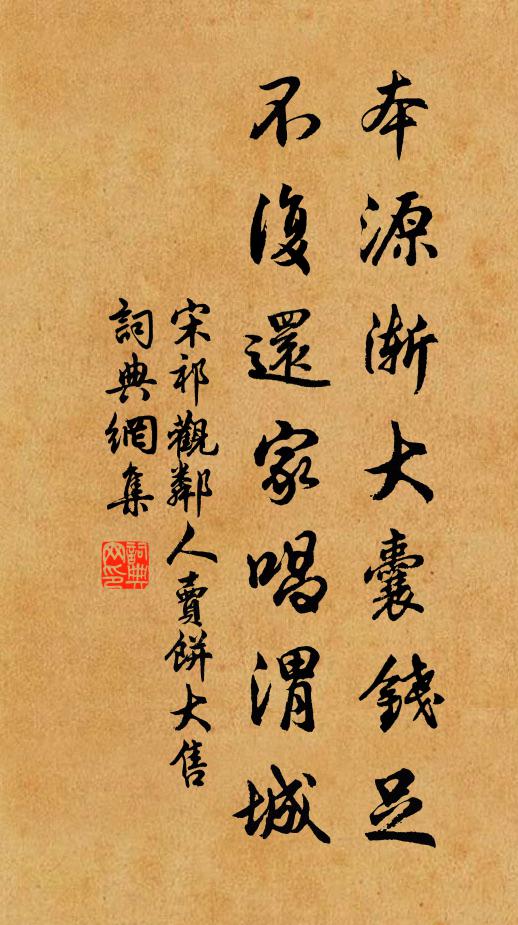 本源漸大囊錢足
不復還家唱渭城
宋祁觀鄰人賣餅大售
詞典網集
詞典
网印